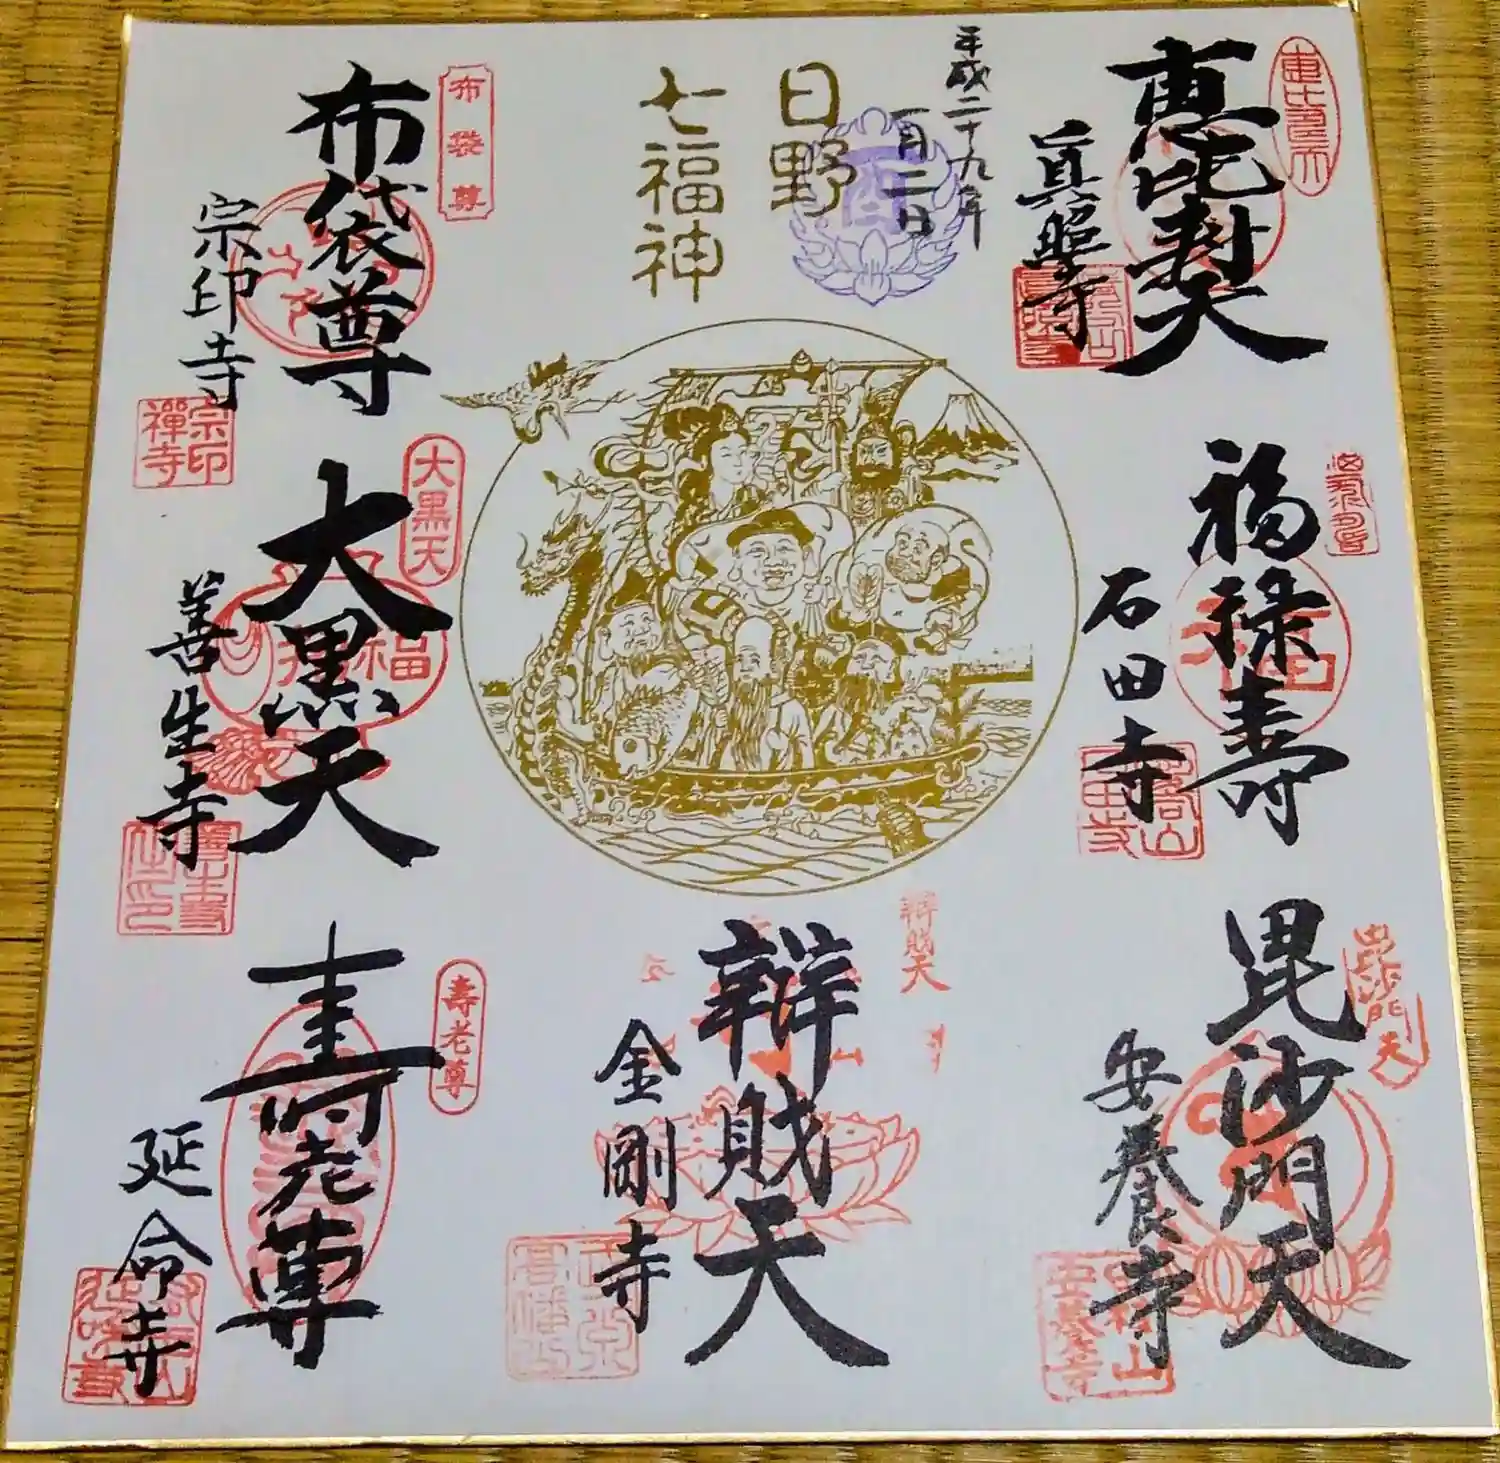 恵比寿天
真照寺
平成二十九年
一月二日
酉
日野
七福神
布袋尊
布袋尊
宗印寺
宗印禅寺
福禄寿
石田寺
大黒天
大黒天
福
善生寺
毘沙門天
毘沙門天
安養寺
辨財天
辨財天
金剛寺
壽老尊
壽老尊
延命寺